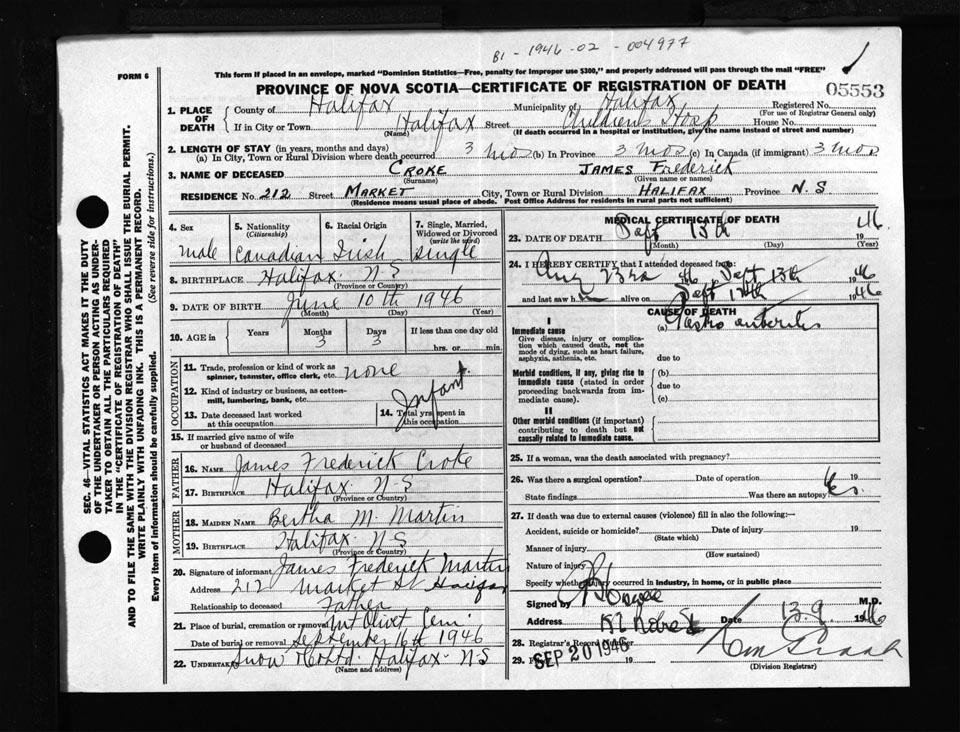 B1 - 1946-02-004977
FORM 6
This form if placed in an envelope, marked "Dominion Statistics—Free, penalty for improper use $300," and properly addressed will pass through the mail "FREE"
PROVINCE OF NOVA SCOTIA—CERTIFICATE OF REGISTRATION OF DEATH
05553
1. PLACE OF DEATH
County of Halifax Municipality of Halifax Registered No.
(For use of Registrar General only)
If in City or Town Halifax Street Children's Hosp House No.
(Name) (If death occurred in a hospital or institution, give the name instead of street and number)
2. LENGTH OF STAY (in years, months and days)
(a) In City, Town or Rural Division where death occurred 3 mos (b) In Province 3 mos (c) In Canada (if immigrant) 3 mos
3. NAME OF DECEASED CROKE JAMES Frederick
(Surname) (Given name or names)
RESIDENCE No. 212 Street MARKET City, Town or Rural Division HALIFAX Province N.S
(Residence means usual place of abode. Post Office Address for residents in rural parts not sufficient)
SEC. 46—VITAL STATISTICS ACT MAKES IT THE DUTY
OF THE UNDERTAKER OR PERSON ACTING AS UNDER-
TAKER TO OBTAIN ALL THE PARTICULARS REQUIRED
IN THE "CERTIFICATE OF REGISTRATION OF DEATH"
AND TO FILE THE SAME WITH THE DIVISION REGISTRAR WHO SHALL ISSUE THE BURIAL PERMIT.
WRITE PLAINLY WITH UNFADING INK. THIS IS A PERMANENT RECORD.
Every item of information should be carefully supplied. (See reverse side for instructions.)
4. Sex
male
5. Nationality
(Citizenship)
Canadian
6. Racial Origin
Irish
7. Single, Married, Widowed or Divorced
(write the word)
Single
8. BIRTHPLACE Halifax N-S
(Province or Country)
9. DATE OF BIRTH June 10th 1946
(Month) (Day) (Year)
10. AGE in
Years Months Days If less than one day old
3 3 hrs. or min.
OCCUPATION
11. Trade, profession or kind of work as
spinner, teamster, office clerk, etc. none
12. Kind of industry or business, as cotton-
mill, lumbering, bank, etc.
Infant.
13. Date deceased last worked
at this occupation
14. Total yrs spent in
this occupation
15. If married give name of wife
or husband of deceased
FATHER
16. NAME James Frederick Croke
17. BIRTHPLACE Halifax N-S
(Province or Country)
MOTHER
18. MAIDEN NAME Bertha M. Martin
19. BIRTHPLACE Halifax N-S
(Province or Country)
20. Signature of informant James Frederick Martin
Address 212 Market St Halifax
Relationship to deceased Father
21. Place of burial, cremation or removal Mt Olivet Cem.
Date of burial or removal September 16th 1946
22. UNDERTAKER Snow Halifax N-S
(Name and address)
MEDICAL CERTIFICATE OF DEATH
23. DATE OF DEATH Sept 13th 1946
(Month) (Day) (Year)
24. I HEREBY CERTIFY that I attended deceased from:
Aug 23rd 46 Sept 13th 1946
and last saw h alive on Sept 13th 1946
CAUSE OF DEATH
I
Immediate cause
Give disease, injury or complica-
tion which caused death, not the
mode of dying, such as heart failure,
asphyxia, asthenia, etc.
(a) Gastro enteritis
due to
Morbid conditions, if any, giving rise to
immediate cause (stated in order
proceeding backwards from im-
mediate cause).
(b)
due to
(c)
II
Other morbid conditions (if important)
contributing to death but not
causally related to immediate cause.
25. If a woman, was the death associated with pregnancy?
26. Was there a surgical operation? Date of operation 19
State findings Was there an autopsy? Yes
27. If death was due to external causes (violence) fill in also the following:—
Accident, suicide or homicide? Date of injury 19
(State which)
Manner of injury
(How sustained)
Nature of injury
Specify whether injury occurred in industry, in home, or in public place
Signed by M.D.
Address Date 13.9. 1946
28. Registrar's Record Number
29. Filed SEP 20 1946 19
(Division Registrar)